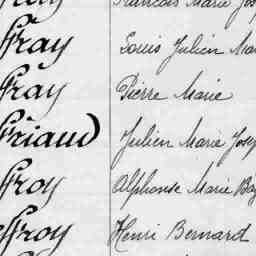 François Marie Jos
ffray Louis Julien Ma
ffray Pierre Marie
ffriaud Julien Marie Josep
ffroy Alphonse Marie Baz
ffroy Henri Bernard